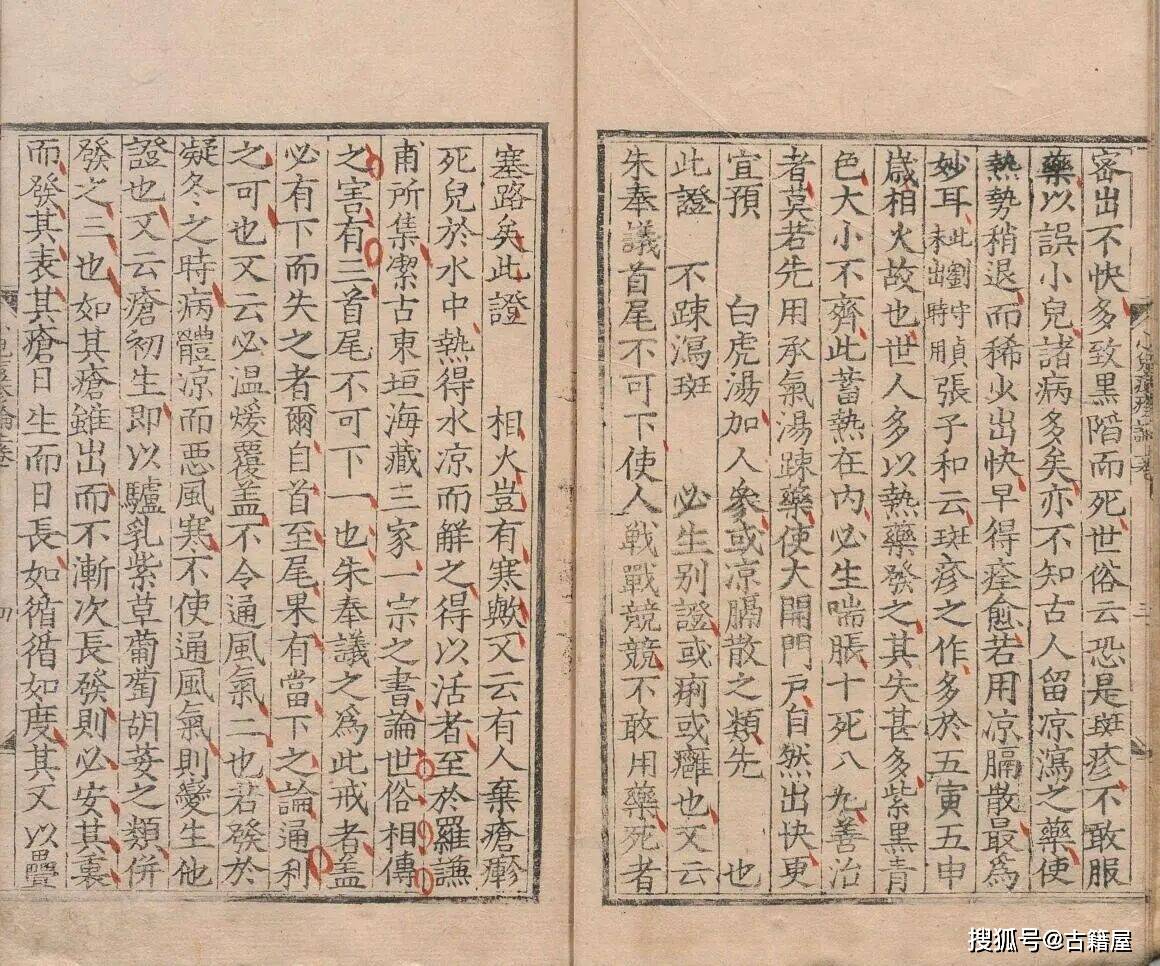 密出不快多致黒陷而死世俗云恐是斑疹不敢服
藥以誤小兒諸病多矣亦不知古人留凉瀉之藥使
熱勢稍退而稀少出快早得痊愈若用凉膈散最爲
妙耳此劉守貞未出時用張子和云斑疹之作多於五寅五申
歳相火故也世人多以熱藥發之其失甚多紫黒青
色大小不齊此蓄熱在内必生喘脹十死八九善治
者莫若先用承氣湯踈藥使大開門戸自然出快更
宜預 白虎湯加人參或凉膈散之類先 也
此證 不踈瀉斑 必生别證或痢或癰也又云
朱奉議首尾不可下使人戰戰競競不敢用藥死者
塞路矣此證 相火豈有寒歟又云有人棄瘡瘳
死兒於水中熱得水凉而解之得以活者至於羅謙
甫所集潔古東垣海藏三家一宗之書論世俗相傳
之害有三首尾不可下一也朱奉議之爲此戒者盖
必有下而失之者爾自首至尾果有當下之論通利
之可也又云必温煖覆盖不令通風氣二也若發於
凝冬之時病體凉而悪風寒不使通風氣則變生他
證也又云瘡初生即以驢乳紫草葡萄胡荽之類併
發之三也如其瘡雖出而不漸次長發則必安其裏
而發其表其瘡日生而日長如循循如度其又以疊
三
四
搜狐号@古籍屋